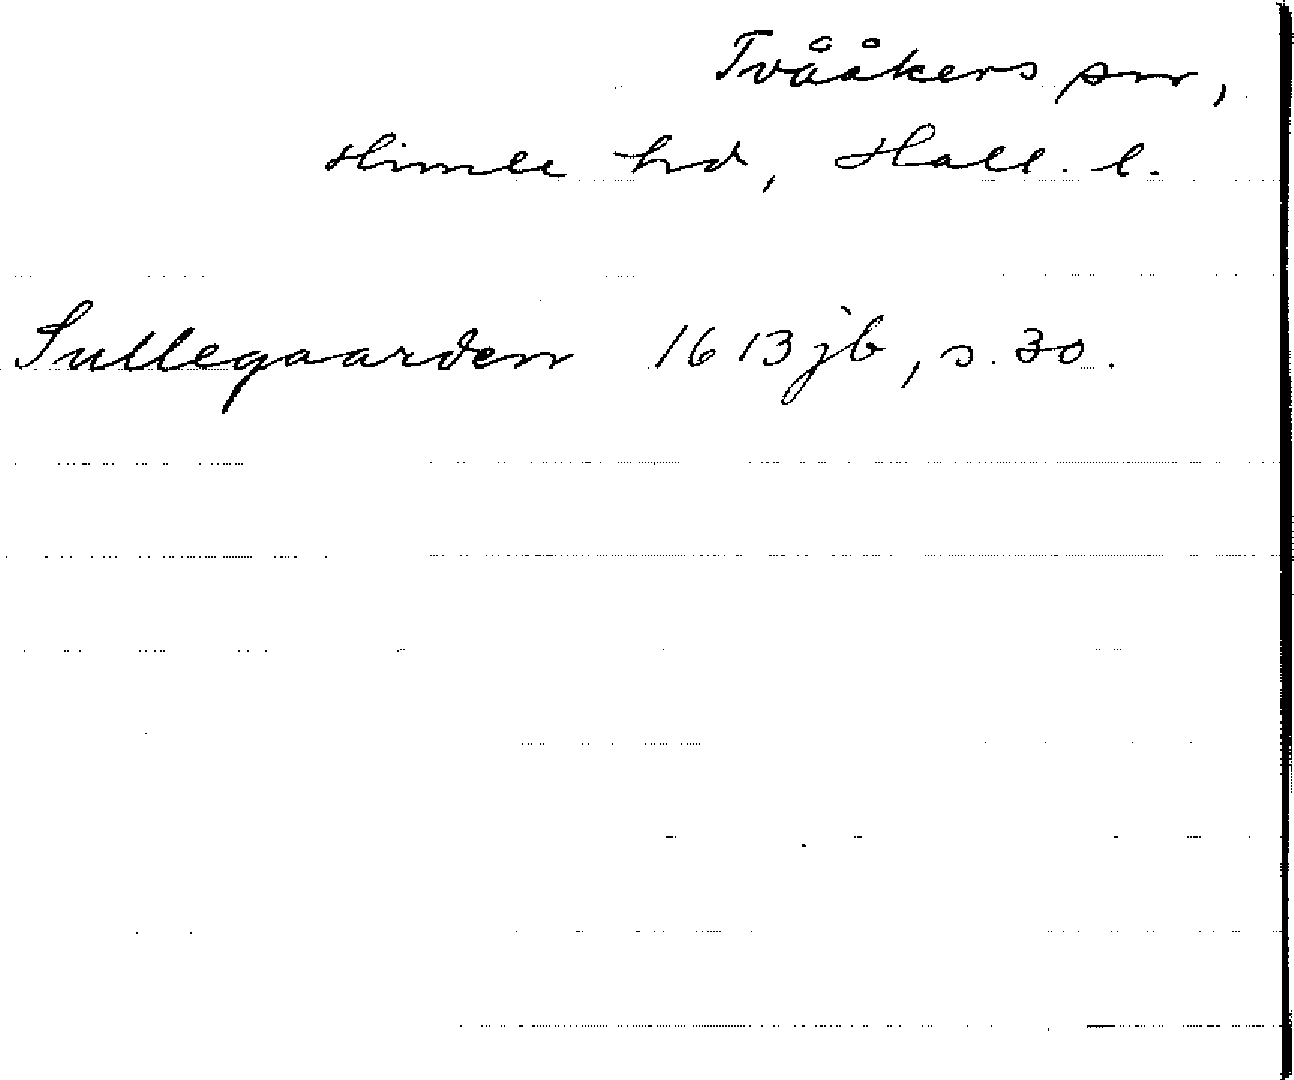 Tvååkers snr,
Himle hd, Hall. l.
Sullegaarden 1613 jb, s. 30.